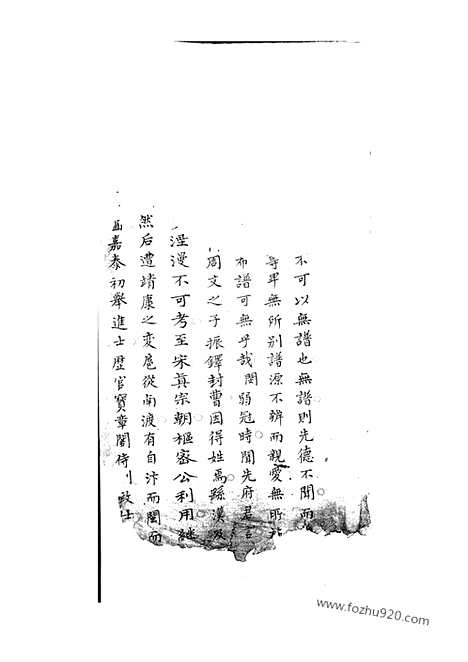 不可以無譜也無譜則先德不聞而
尊卑無所別譜源不辨而親愛無所
而譜可無乎哉閏弱冠時聞先府君言
周文之子振鐸封曹因得姓焉歷漢及
湮漫不可考至宋真宗朝樞密公利用繼
然后遭靖康之变扈從南渡有自汴而閩而
嘉泰初舉進士歷官寶章閣侍致士
www.fozhu920.com